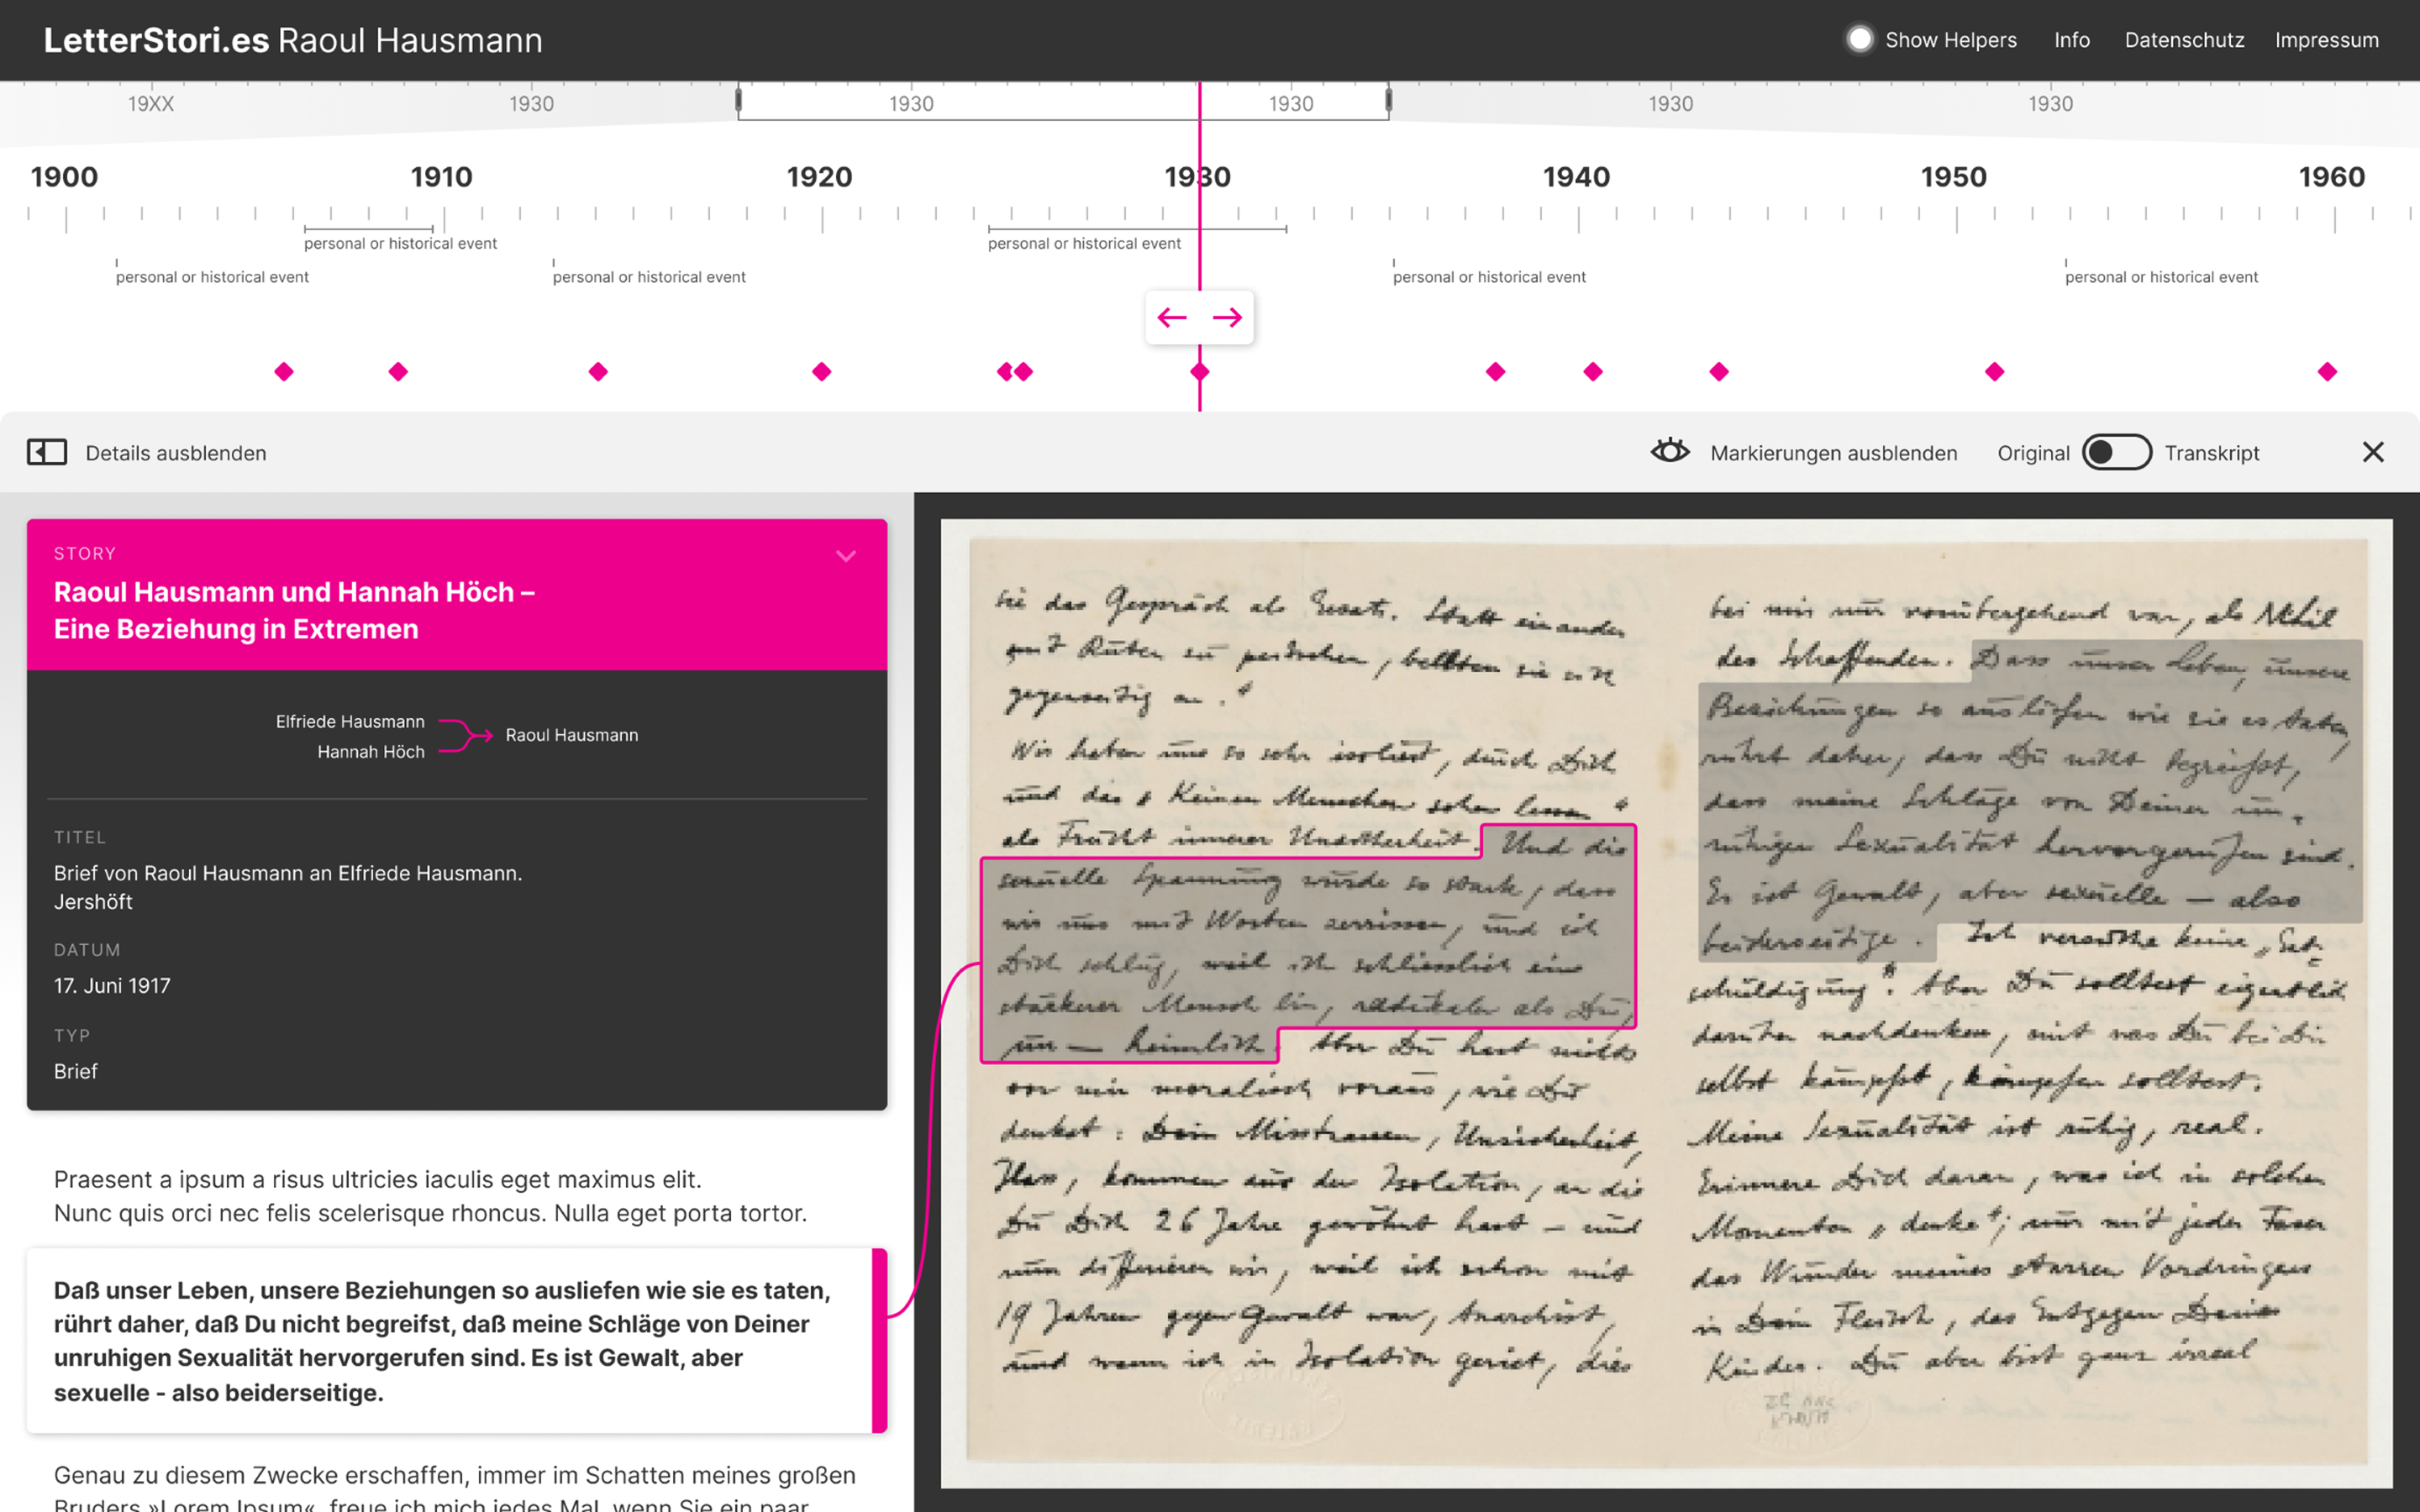 LetterStori.es Raoul Hausmann
Show Helpers Info Datenschutz Impressum
19XX 1930 1930 1930 1930 1930
1900 1910 1920 1930 1940 1950 1960
personal or historical event personal or historical event
personal or historical event personal or historical event personal or historical event personal or historical event
Details ausblenden
Markierungen ausblenden Original Transkript
STORY
Raoul Hausmann und Hannah Höch –
Eine Beziehung in Extremen
Elfriede Hausmann
Hannah Höch
Raoul Hausmann
TITEL
Brief von Raoul Hausmann an Elfriede Hausmann.
Jershöft
DATUM
17. Juni 1917
TYP
Brief
Praesent a ipsum a risus ultricies iaculis eget maximus elit.
Nunc quis orci nec felis scelerisque rhoncus. Nulla eget porta tortor.
Daß unser Leben, unsere Beziehungen so ausliefen wie sie es taten,
rührt daher, daß Du nicht begreifst, daß meine Schläge von Deiner
unruhigen Sexualität hervorgerufen sind. Es ist Gewalt, aber
sexuelle - also beiderseitige.
Genau zu diesem Zwecke erschaffen, immer im Schatten meines großen
Bruders »Lorem Ipsum«, freue ich mich jedes Mal, wenn Sie ein paar
sie das Gespräch als Ersatz. Statt einander
mit Ruten zu peitschen, bellten sie sich
gegenseitig an."
Wir haben uns so sehr isoliert, durch Dich
und das Keinen Menschen sehen lassen"
als Frucht innerer Unsicherheit. Und die
sexuelle Spannung wurde so stark, dass
wir uns mit Worten zerrissen, und ich
Dich schlug, weil ich schliesslich ein
stärkerer Mensch bin, radikaler als Du,
nur — heimlich. Aber Du hast nichts
vor mir moralisch voraus, wie Du
denkst: Dein Misstrauen, Unsicherheit,
Hass, kommen aus der Isolation, an die
Du Dich 26 Jahre gewöhnt hast – und
nun differieren wir, weil ich schon mit
19 Jahren gegen Gewalt war, Anarchist,
und wenn ich in Isolation geriet, dies
bei mir nur vorübergehend war, als Nihil
des Schaffenden. Dass unser Leben, unsere
Beziehungen so ausliefen wie sie es taten,
rührt daher, dass Du nicht begreifst,
dass meine Schläge von Deiner un-
ruhigen Sexualität hervorgerufen sind.
Es ist Gewalt, aber sexuelle — also
beiderseitige. Ich versuche keine „Ent-
schuldigung". Aber Du solltest eigentlich
darüber nachdenken, mit was Du bei Dir
selbst kämpfst, kämpfen solltest.
Meine Sexualität ist ruhig, real.
Erinnere Dich daran, was ich in solchen
Momenten „denke"; nur mit jeder Faser
das Wunder meines starren Vordringens
in Dein Fleisch, das Entgegen Deines
Kindes. Du aber bist ganz irreal